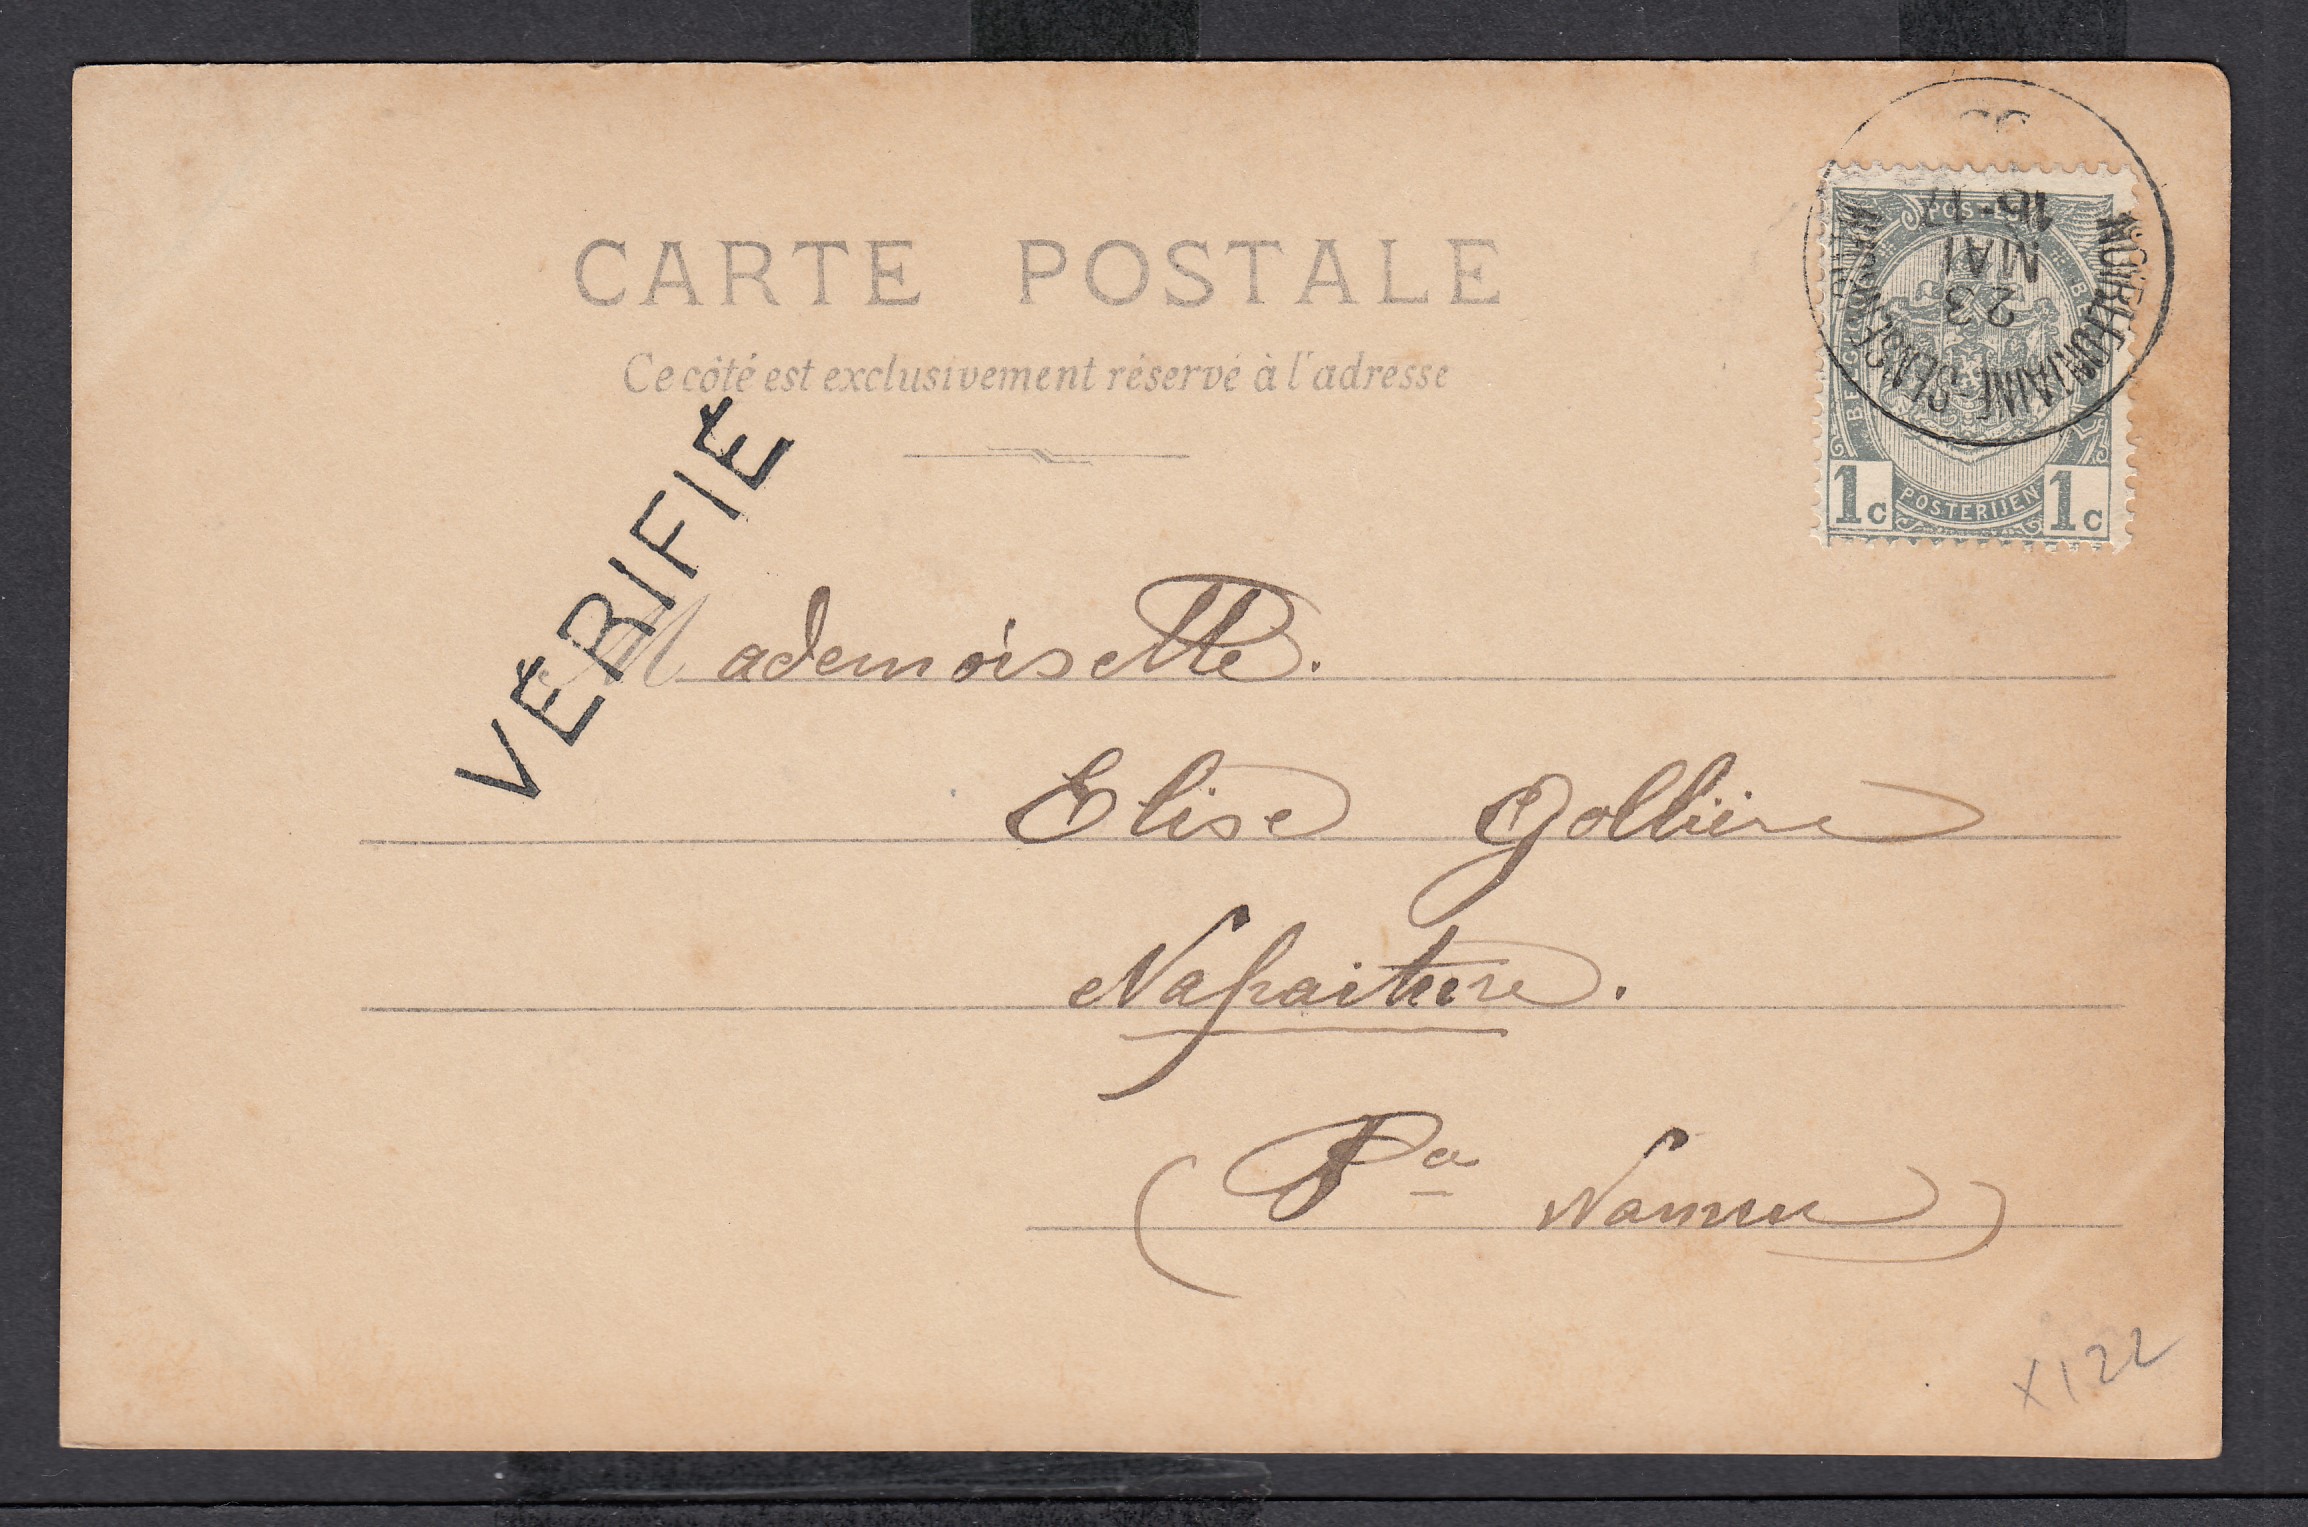 CARTE POSTALE
Ce côté est exclusivement réservé à l'adresse
VÉRIFIÉ
POSTES
BELGIQUE
POSTERIJEN
1c 1c
16-17
MAI
23
Mademoiselle.
Elise Gollière
Nafraiture.
(Pce Namur)
X122